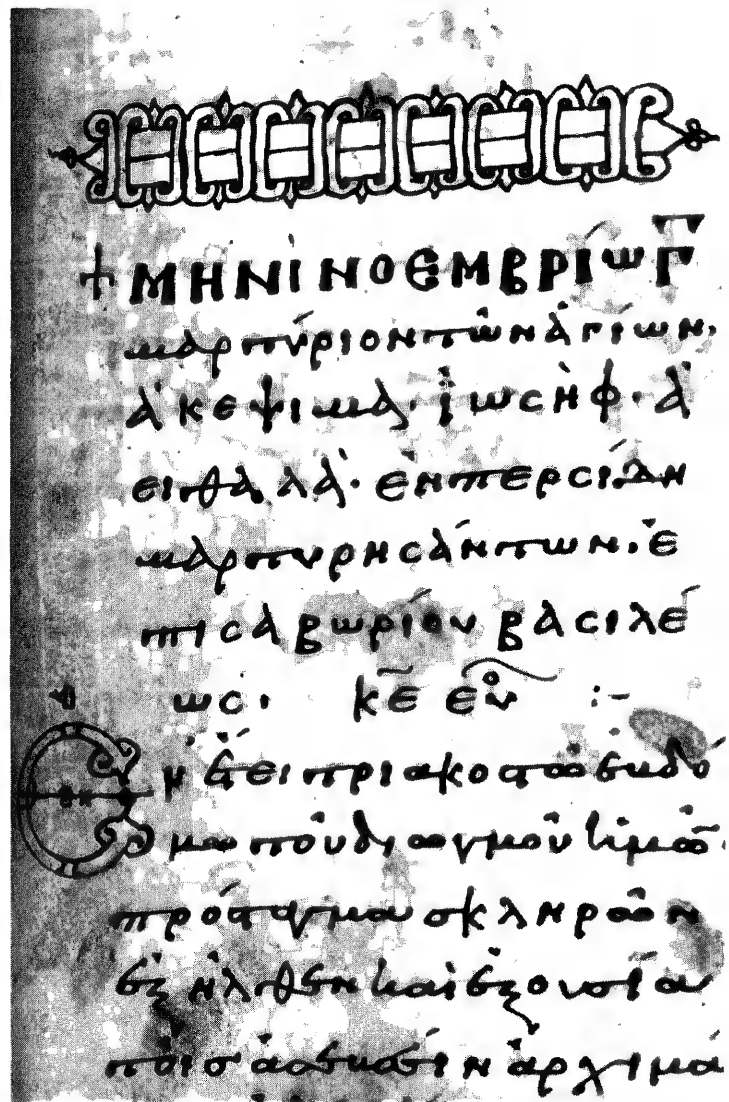 + ΜΗΝΙ ΝΟΕΜΒΡΙΩ Γ
μαρτύριον τῶν ἁγίων.
ἀκεψιμᾶ· ἰωσὴφ· ἀ
ειθαλᾶ· ἐν περσίδη
μαρτυρησάντων. ἐ
πὶ σαβωρίου βασιλέ
ως. κε̅ εὐ :-
Εν ἔτει τριακοστῶ ἑβδό
μω τοῦ διωγμοῦ ἡμῶν·
πρόσταγμα σκληρῶν
ἐξήλθεν καὶ ἐξουσία
τοῖσ ἀρχιμά